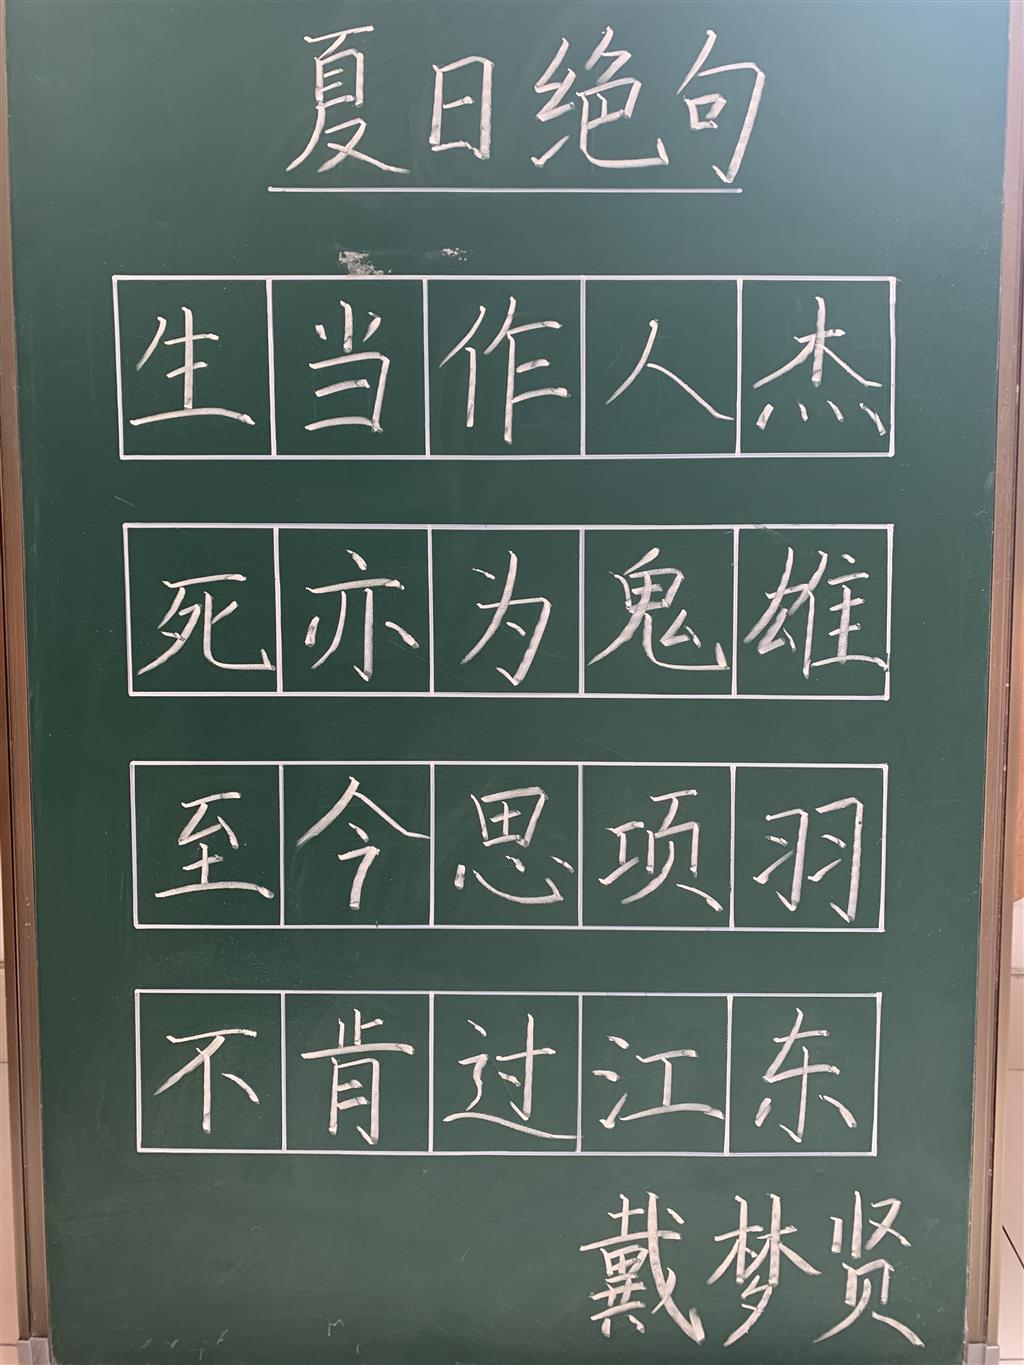 夏日绝句
生当作人杰
死亦为鬼雄
至今思项羽
不肯过江东
戴梦贤